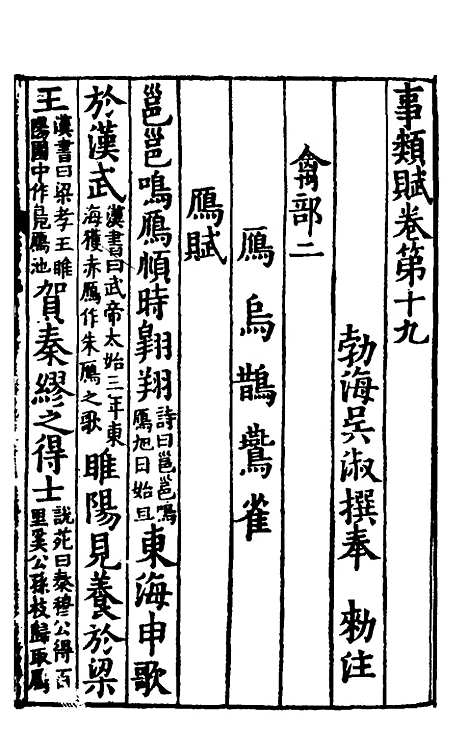 事類賦卷第十九
勃海吳淑撰奉　勑注
禽部二
鴈　烏　鵲　鷰　雀
鴈賦
邕邕鳴鴈順時翺翔詩曰邕邕鳴鴈旭日始旦東海申歌
於漢武漢書曰武帝太始三年東海獲赤鴈作朱鴈之歌睢陽見養於梁
王漢書曰梁孝王睢陽園中作鳧鴈池賀秦繆之得士說苑曰秦穆公得百里奚公孫枝歸取鴈